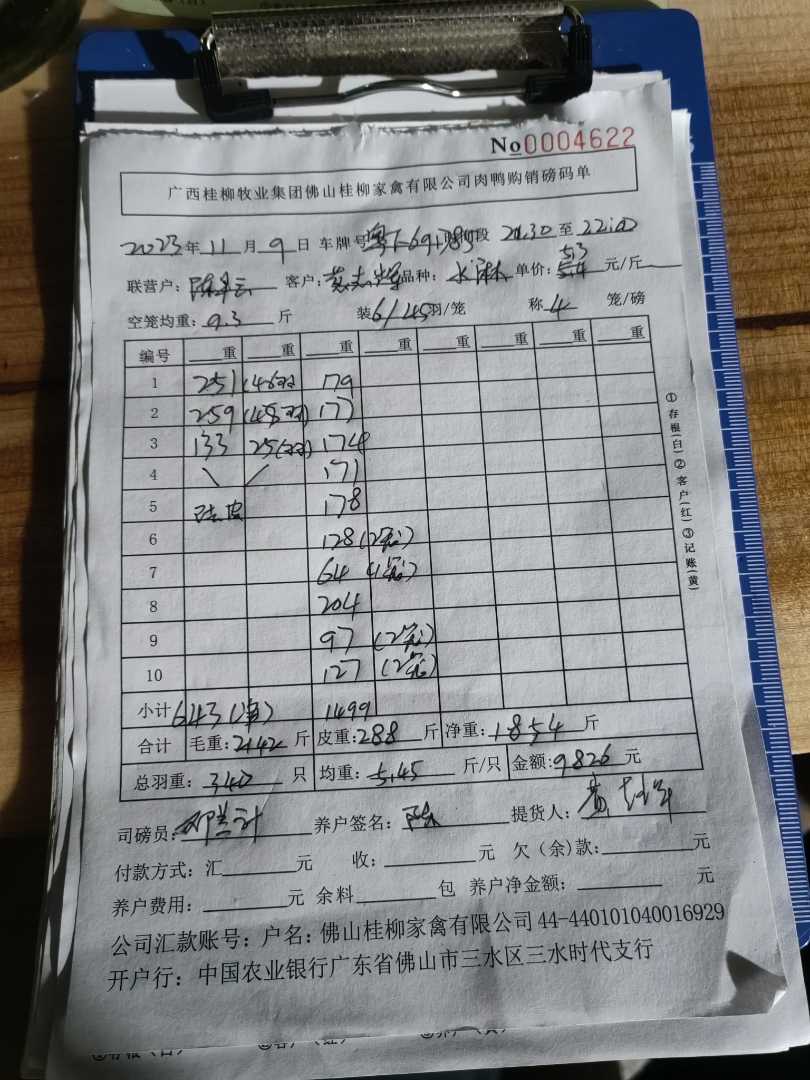 No0004622
广西桂柳牧业集团佛山桂柳家禽有限公司肉鸭购销磅码单
2023年11月9日 车牌号 段 21.30至22:00
联营户: 客户: 黄 品种: 水 单价: 5.3 5.4 元/斤
空笼均重: 9.3 斤 装6/45羽/笼 称4笼/磅
编号 重 重 重 重 重 重 重 重
1 251 (46羽 179
2 259 (48羽) 177
3 133 25(羽) 174
4 171
5 178
6 128 (2笼)
7 64 (1笼)
8 204
9 97 (2笼)
10 127 (2笼)
小计 643 1499
合计 毛重:2142斤 皮重:288斤 净重:1854斤
总羽重: 340 只 均重: 5.45 斤/只 金额:9826元
司磅员: 邓兰计 养户签名: 陈 提货人: 黄
付款方式: 汇 元 收: 元 欠(余)款: 元
养户费用: 元 余料 包 养户净金额: 元
公司汇款账号: 户名: 佛山桂柳家禽有限公司 44-440101040016929
开户行: 中国农业银行广东省佛山市三水区三水时代支行
①存根(白)②客户(红)③记账(黄)